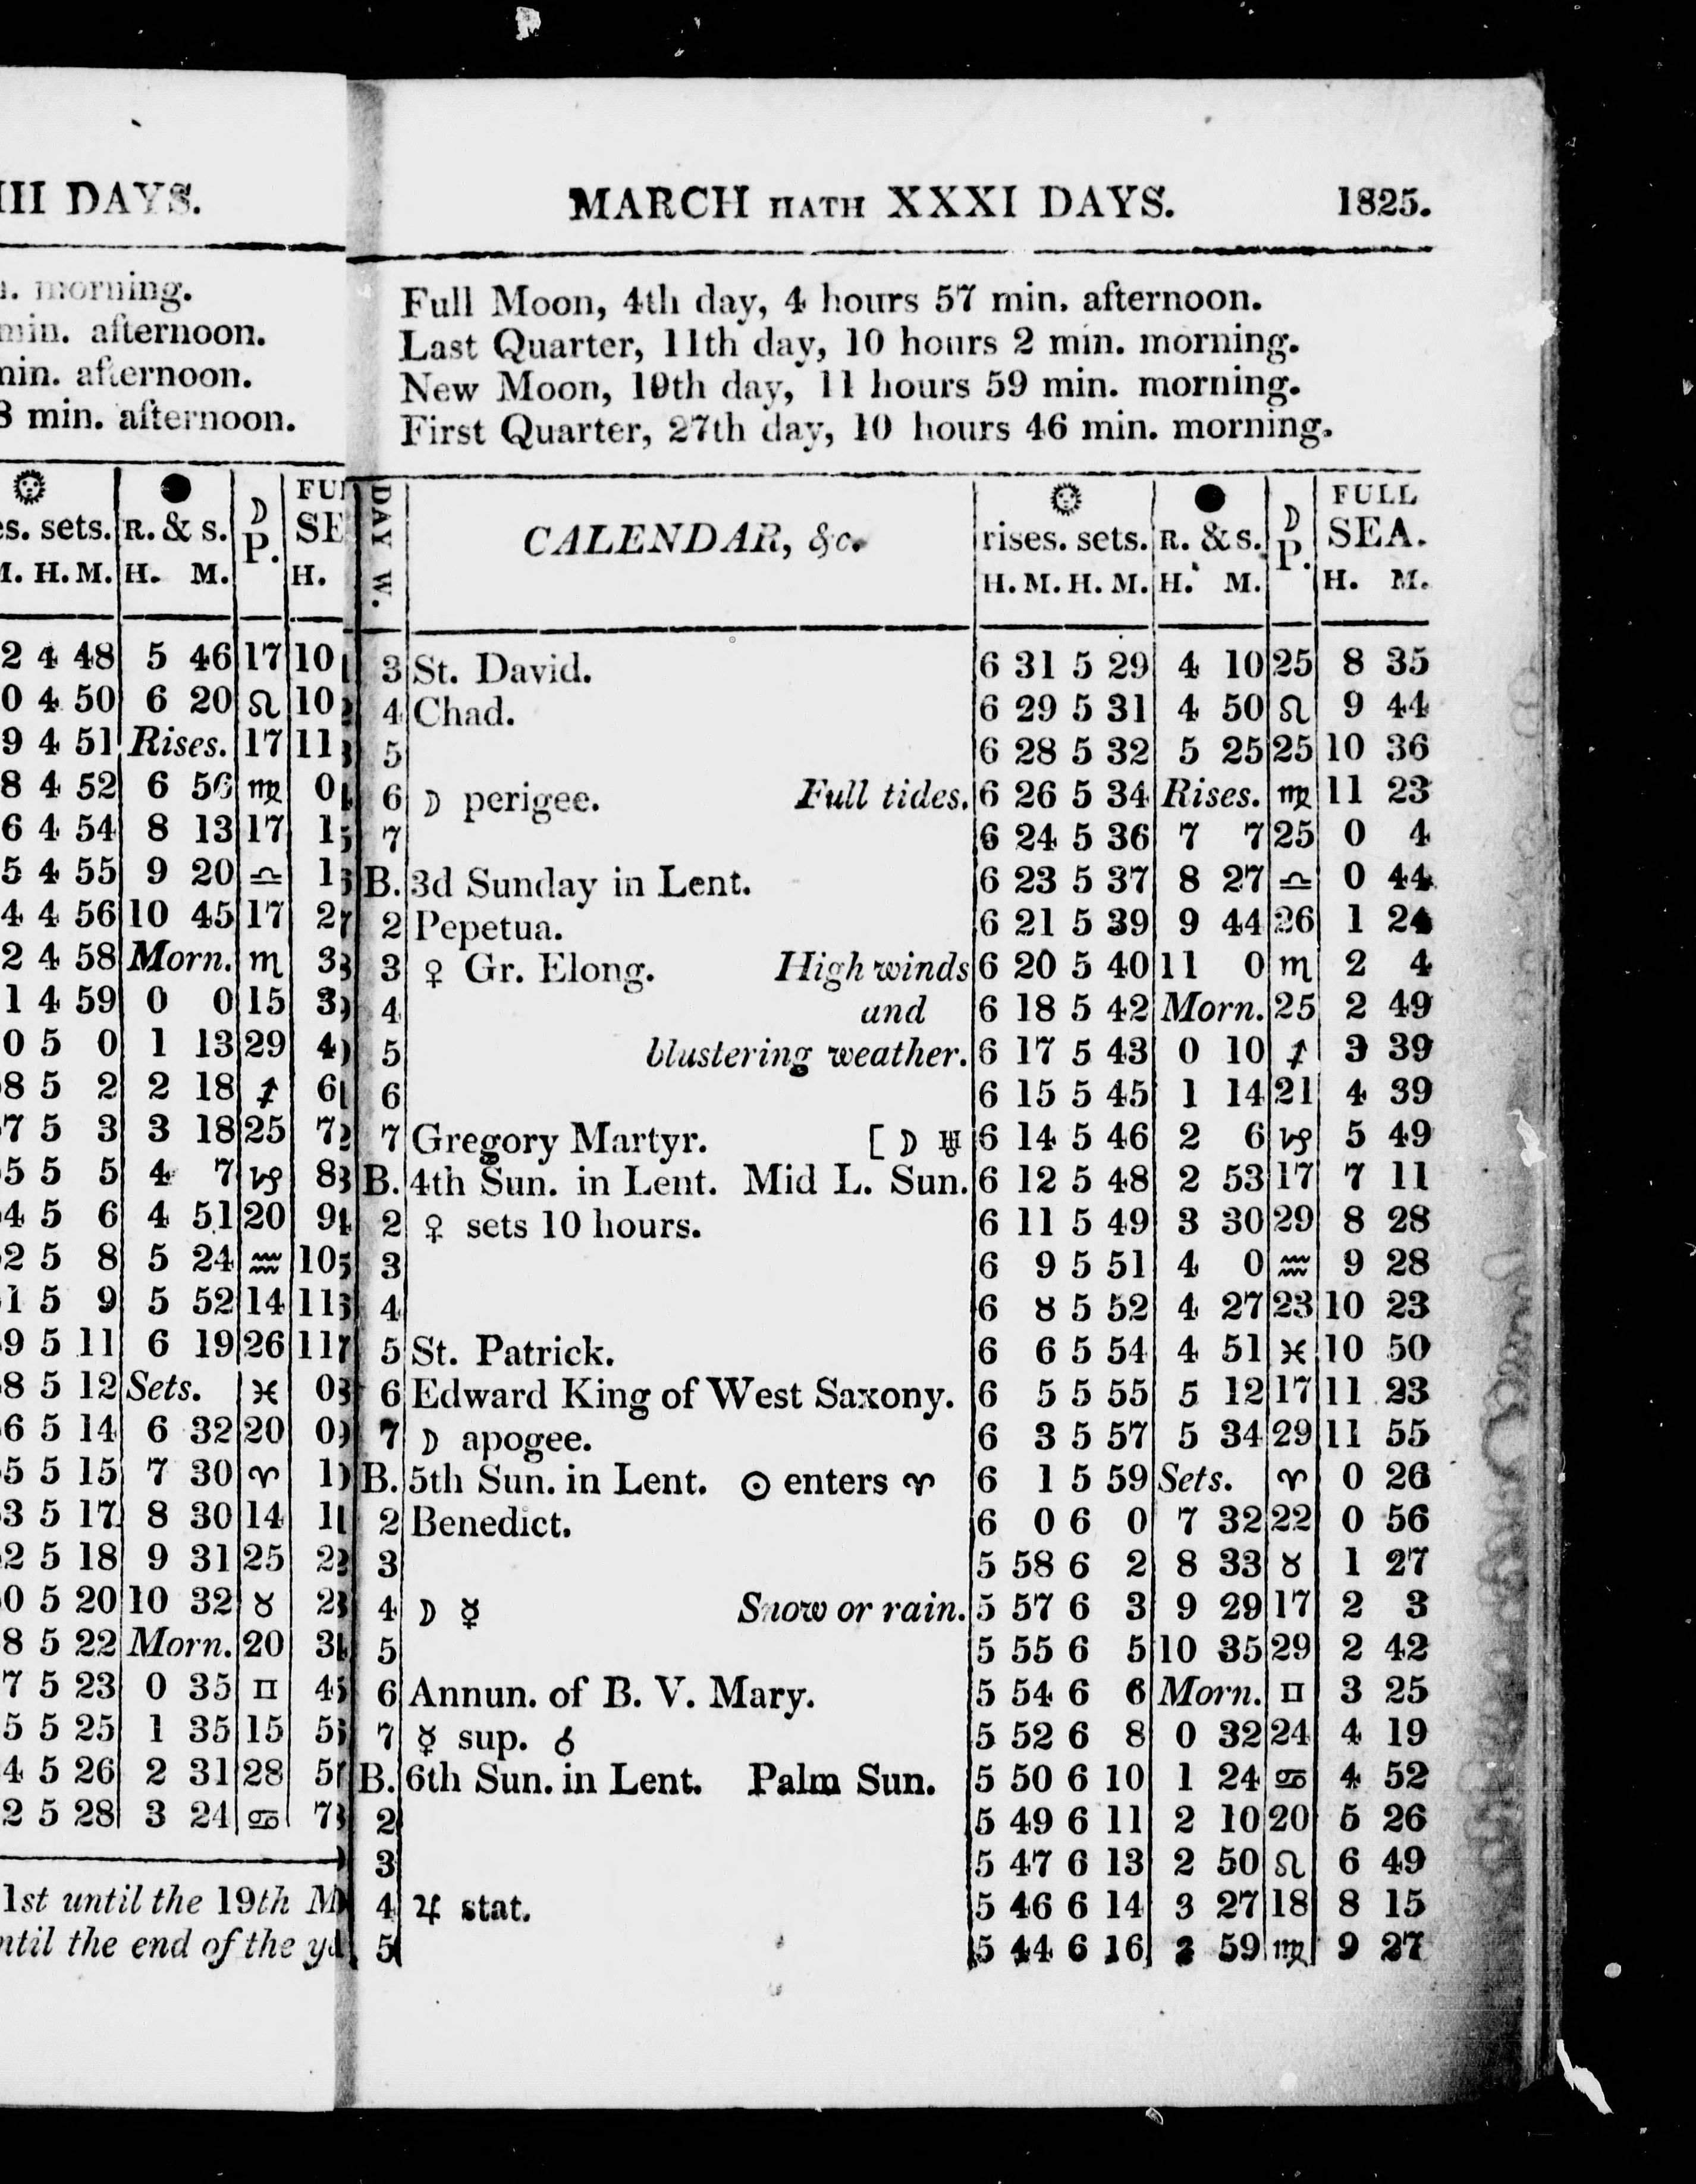 III DAYS.
n. morning.
min. afternoon.
min. afternoon.
8 min. afternoon.
FUL
es. sets. R. & s. ☽ SE
P.
M. H. M. H. M. H.
2 4 48 5 46 17 10
0 4 50 6 20 ♌ 10
9 4 51 Rises. 17 11
8 4 52 6 56 ♍ 0
6 4 54 8 13 17 1
5 4 55 9 20 ♎ 1
4 4 56 10 45 17 2
2 4 58 Morn. ♏ 3
1 4 59 0 0 15 3
0 5 0 1 13 29 4
8 5 2 2 18 ♐ 6
7 5 3 3 18 25 7
5 5 5 4 7 ♑ 8
4 5 6 4 51 20 9
2 5 8 5 24 ♒ 10
1 5 9 5 52 14 11
9 5 11 6 19 26 11
8 5 12 Sets. ♓ 0
6 5 14 6 32 20 0
5 5 15 7 30 ♈ 1
3 5 17 8 30 14 1
2 5 18 9 31 25 2
0 5 20 10 32 ♉ 2
8 5 22 Morn. 20 3
7 5 23 0 35 ♊ 4
5 5 25 1 35 15 5
4 5 26 2 31 28 5
2 5 28 3 24 ♋ 7
1st until the 19th M
ntil the end of the
MARCH HATH XXXI DAYS. 1825.
Full Moon, 4th day, 4 hours 57 min. afternoon.
Last Quarter, 11th day, 10 hours 2 min. morning.
New Moon, 19th day, 11 hours 59 min. morning.
First Quarter, 27th day, 10 hours 46 min. morning.
DAY W.
FULL
CALENDAR, &c. rises. sets. R. & s. ☽ P. SEA.
H. M. H. M. H. M. H. M.
3 St. David. 6 31 5 29 4 10 25 8 35
4 Chad. 6 29 5 31 4 50 ♌ 9 44
5 6 28 5 32 5 25 25 10 36
6 ☽ perigee. Full tides. 6 26 5 34 Rises. ♍ 11 23
7 6 24 5 36 7 7 25 0 4
B. 3d Sunday in Lent. 6 23 5 37 8 27 ♎ 0 44
2 Pepetua. 6 21 5 39 9 44 26 1 24
3 ♀ Gr. Elong. High winds 6 20 5 40 11 0 ♏ 2 4
4 and 6 18 5 42 Morn. 25 2 49
5 blustering weather. 6 17 5 43 0 10 ♐ 3 39
6 6 15 5 45 1 14 21 4 39
7 Gregory Martyr. [ ☽ ♅ 6 14 5 46 2 6 ♑ 5 49
B. 4th Sun. in Lent. Mid L. Sun. 6 12 5 48 2 53 17 7 11
2 ♀ sets 10 hours. 6 11 5 49 3 30 29 8 28
3 6 9 5 51 4 0 ♒ 9 28
4 6 8 5 52 4 27 23 10 23
5 St. Patrick. 6 6 5 54 4 51 ♓ 10 50
6 Edward King of West Saxony. 6 5 5 55 5 12 17 11 23
7 ☽ apogee. 6 3 5 57 5 34 29 11 55
B. 5th Sun. in Lent. ☉ enters ♈ 6 1 5 59 Sets. ♈ 0 26
2 Benedict. 6 0 6 0 7 32 22 0 56
3 5 58 6 2 8 33 ♉ 1 27
4 ☽ ☿ Snow or rain. 5 57 6 3 9 29 17 2 3
5 5 55 6 5 10 35 29 2 42
6 Annun. of B. V. Mary. 5 54 6 6 Morn. ♊ 3 25
7 ☿ sup. ☌ 5 52 6 8 0 32 24 4 19
B. 6th Sun. in Lent. Palm Sun. 5 50 6 10 1 24 ♋ 4 52
2 5 49 6 11 2 10 20 5 26
3 5 47 6 13 2 50 ♌ 6 49
4 ♃ stat. 5 46 6 14 3 27 18 8 15
5 5 44 6 16 3 59 ♍ 9 27